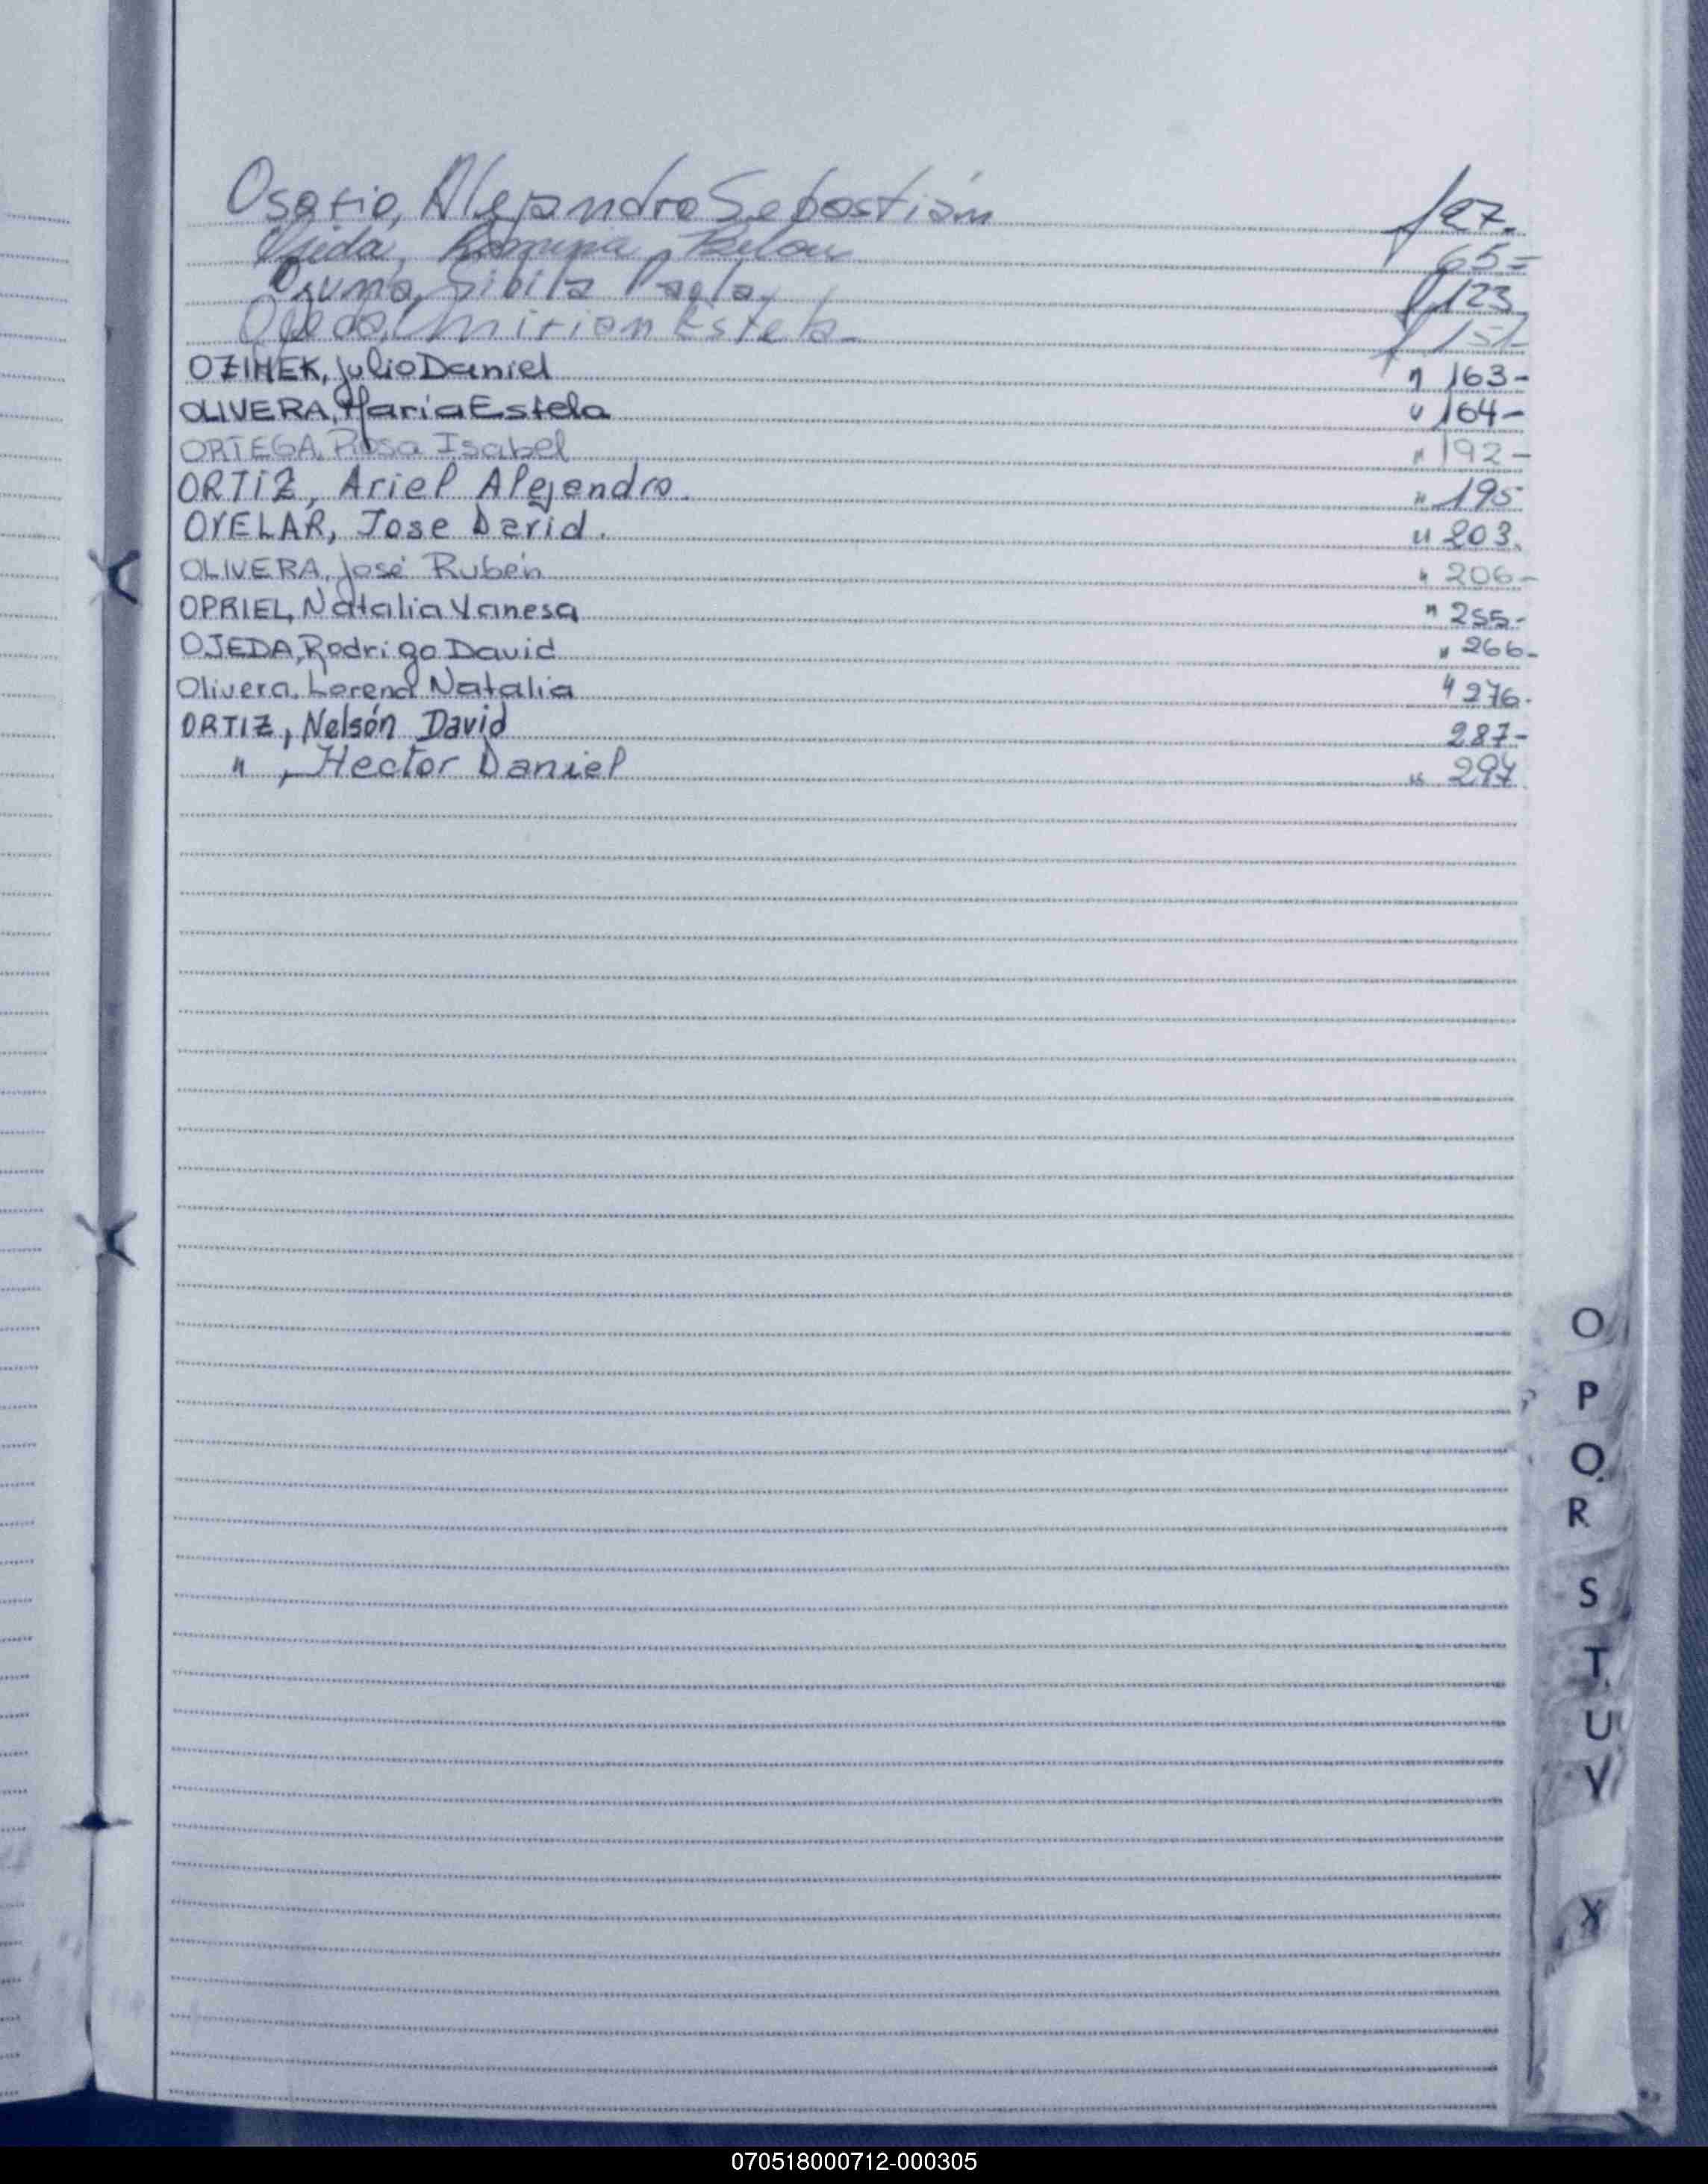 Osorio, Alejandro Sebastián f 27-
Ojeda, Romina Belen 65=
Osuna, Sibila Paola. f 123
Ojeda, Mirian Estela- f 151-
OZIHEK, Julio Daniel " 163-
OLIVERA, María Estela " 164-
ORTEGA, Rosa Isabel " 192-
ORTIZ, Ariel Alejandro. " 195
OVELAR, Jose David. " 203.
OLIVERA, José Rubén " 206-
OPRIEL, Natalia Vanesa " 255-
OJEDA, Rodrigo David " 266-
Olivera, Lorena Natalia " 276-
ORTIZ, Nelsón David 287-
" , Hector Daniel " 294
O
P
Q
R
S
T
U
V
Y
070518000712-000305